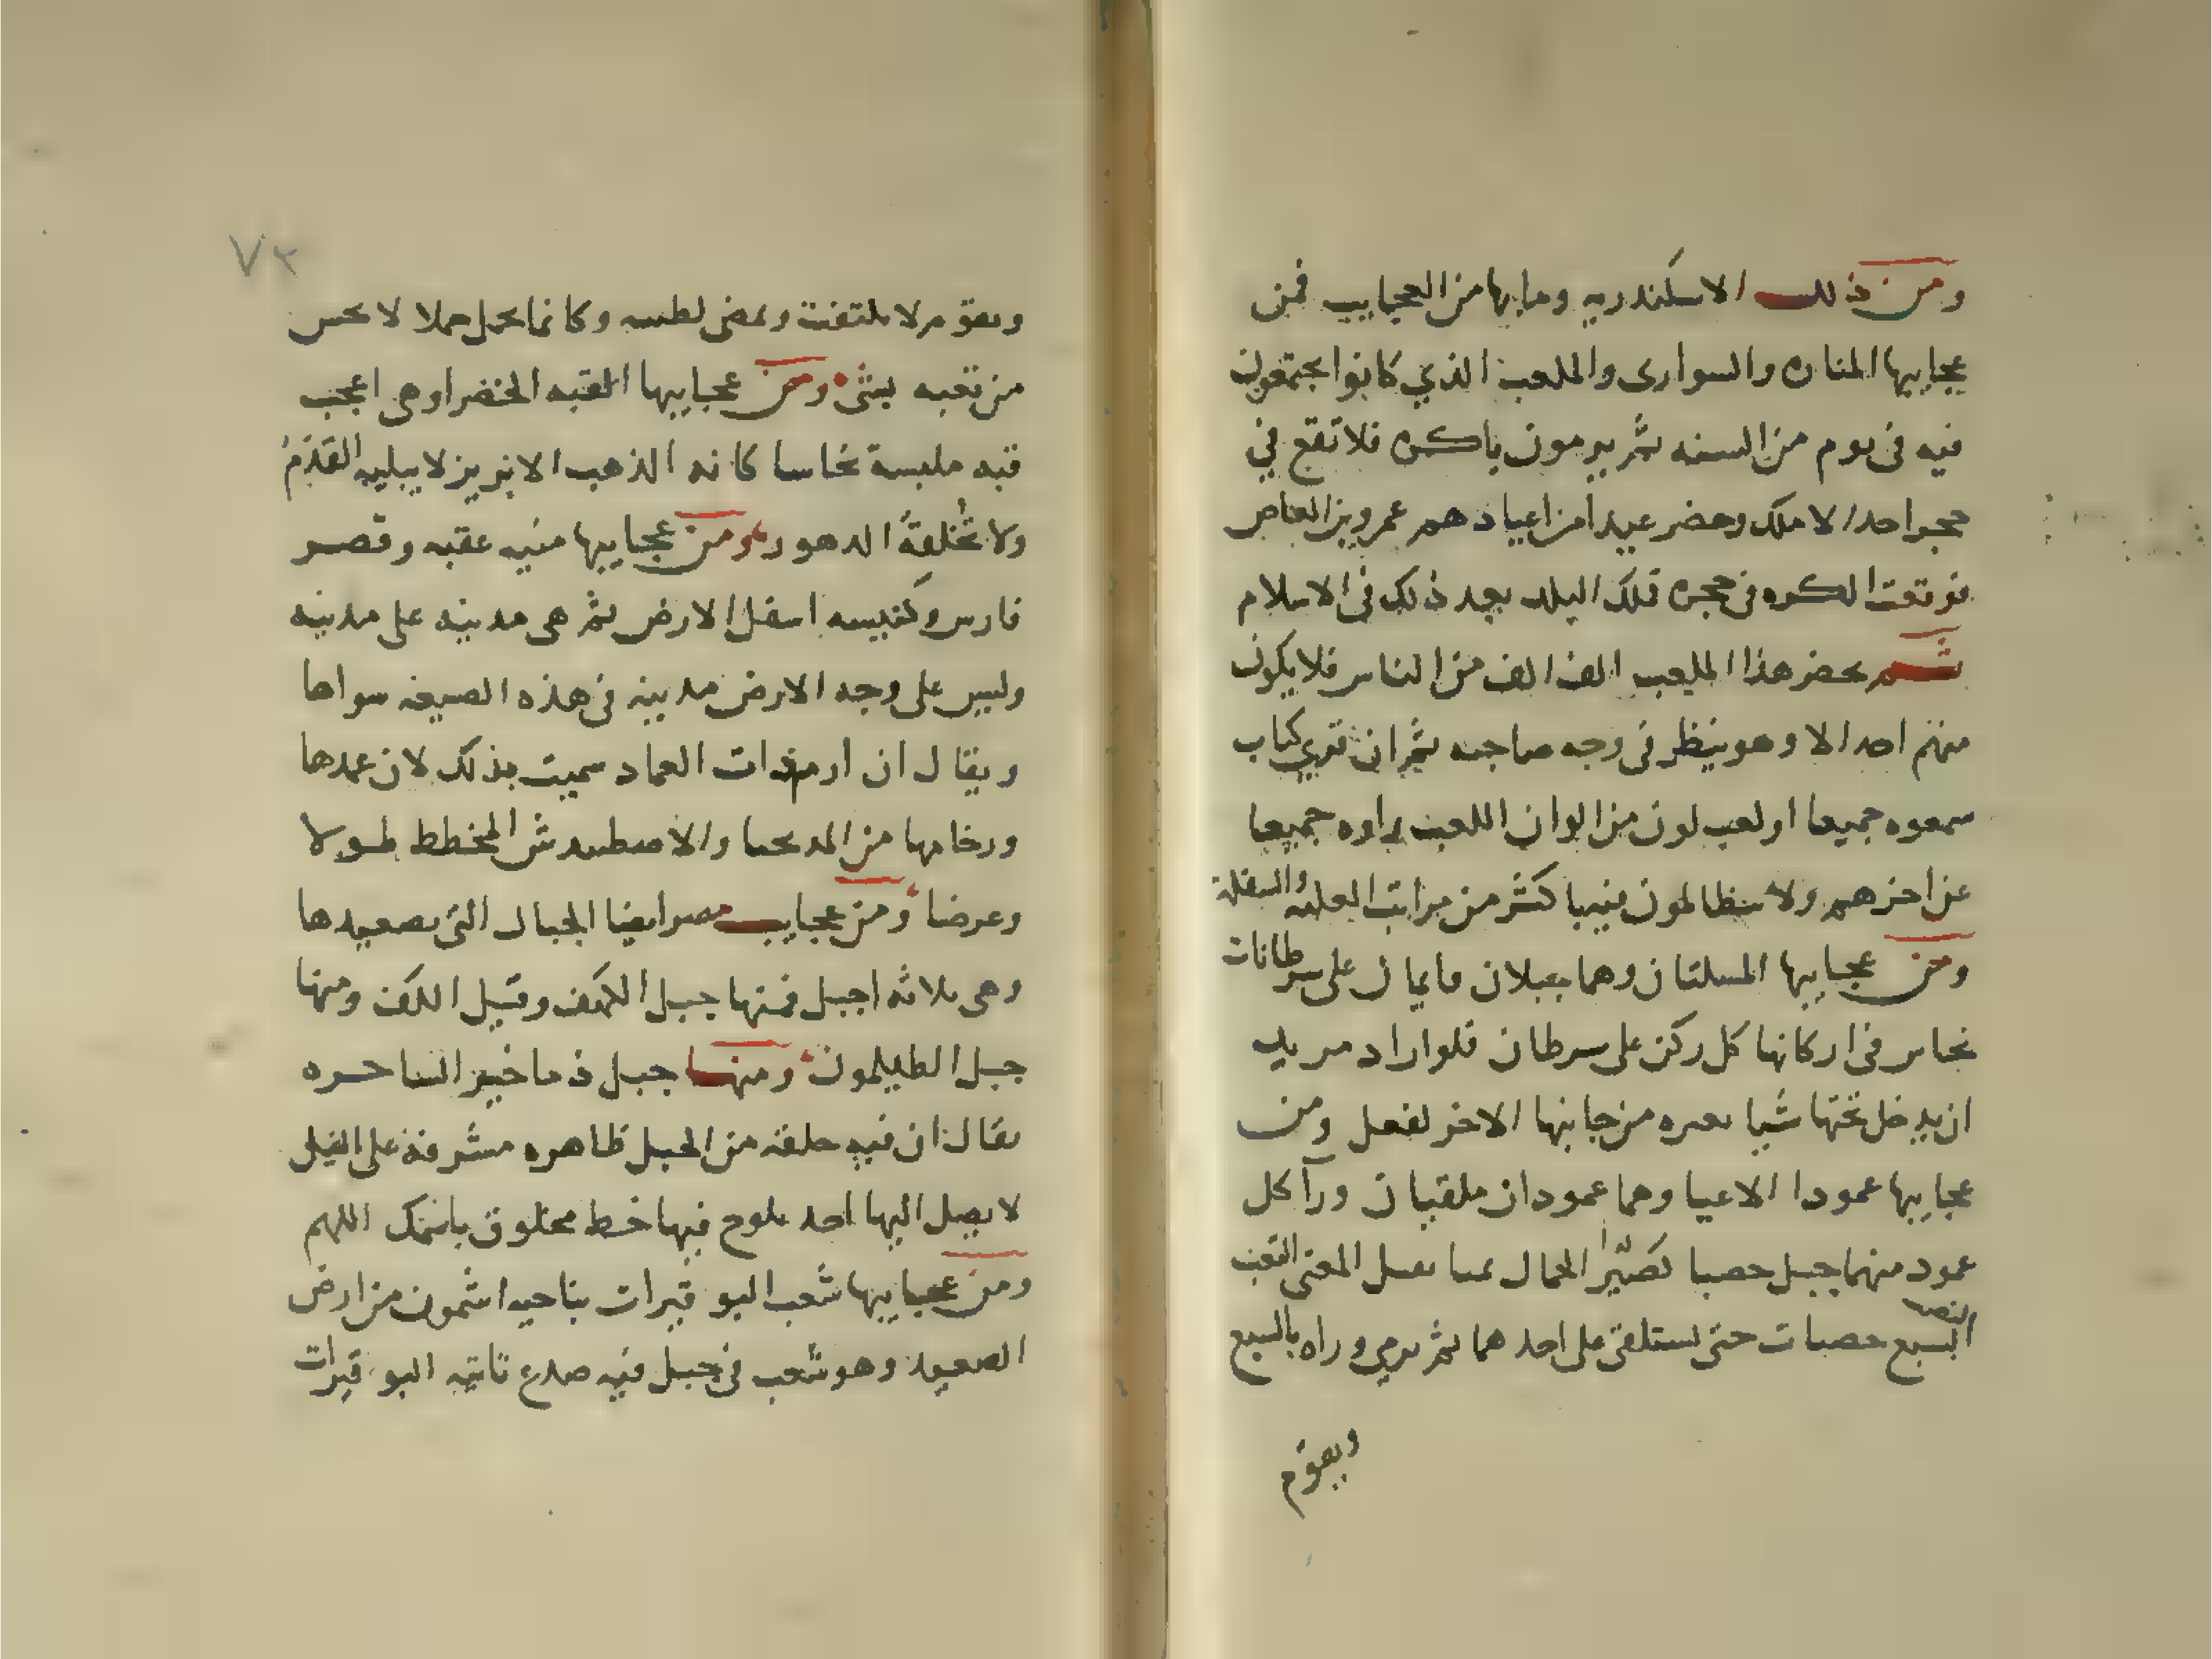 ومن ذلك الاسكندريه وما بها من العجايب فمن
عجايبها المناره والسوارى والملعب الذي كانوا يجتمعون
فيه فى يوم من السنه ثم يرمون باكره فلا تقع في
حجر احد الا ملك وحضر عيدا من اعيادهم عمرو بن العاص
فوقعت الكره فى حجره فملك البلد بعد ذلك فى الاسلام
ثم يحضر هذا الملعب الف الف من الناس فلا يكون
منهم احد الا وهو ينظر فى وجه صاحبه ثم ان قري كتاب
سمعوه جميعا او لعب لون من الوان اللعب راوه جميعا
عن اخرهم ولا يتظالمون فيه باكثر من مراتب العليه والسفله
ومن عجايبها المسلتان وهما جبلان قايمان على سرطانات
نحاس فى اركانها كل ركن على سرطان فلو اراد مريد
ان يدخل تحتها شيا يعبره من جانبها الاخر لفعل ومن
عجايبها عمودا الاعيا وهما عمودان ملقيان ورآ كل
عمود منهما جبل حصبا الجمال المعنى التعب
النصب
السبع حصبات حتى يستلقى على احدهما ثم يرمي وراه بالسبع
ويقوم
٧٢
ويقوم لا يلتفت ويمضى لطيته وكانما يحمل حملا لا يحس
من تعبه بشى ومن عجايبها القبه الخضرا وهى اعجب
قبه ملبسة نحاسا كانه الذهب الابريز لا يبليه القدم
ولا تخلقه الدهور ومن عجايبها منيه عقبه وقصر
فارس وكنيسه اسفل الارض ثم هى مدينه على مدينه
وليس على وجه الارض مدينه فى هذه الصيغه سواها
ويقال ان ارم ذات العماد سميت بذلك لان عمدها
ورخامها من المخطط طولا
وعرضا ومن عجايب مصر ايضا الجبال التى بصعيدها
وهى ثلاثه اجبل فمنها جبل الكهف وقيل الكف ومنها
جبل الطيلمون ومنها جبل زماخير الساحره
يقال ان فيه حلقه من الجبل ظاهره مشرفة على النيل
لا يصل اليها احد يلوح فيها خط مخلوق باسمك اللهم
ومن عجايبها شعب البوقيرات بناحيه اشمون من ارض
الصعيد وهو شعب فى جبل فيه صدع تاتيه البوقيرات